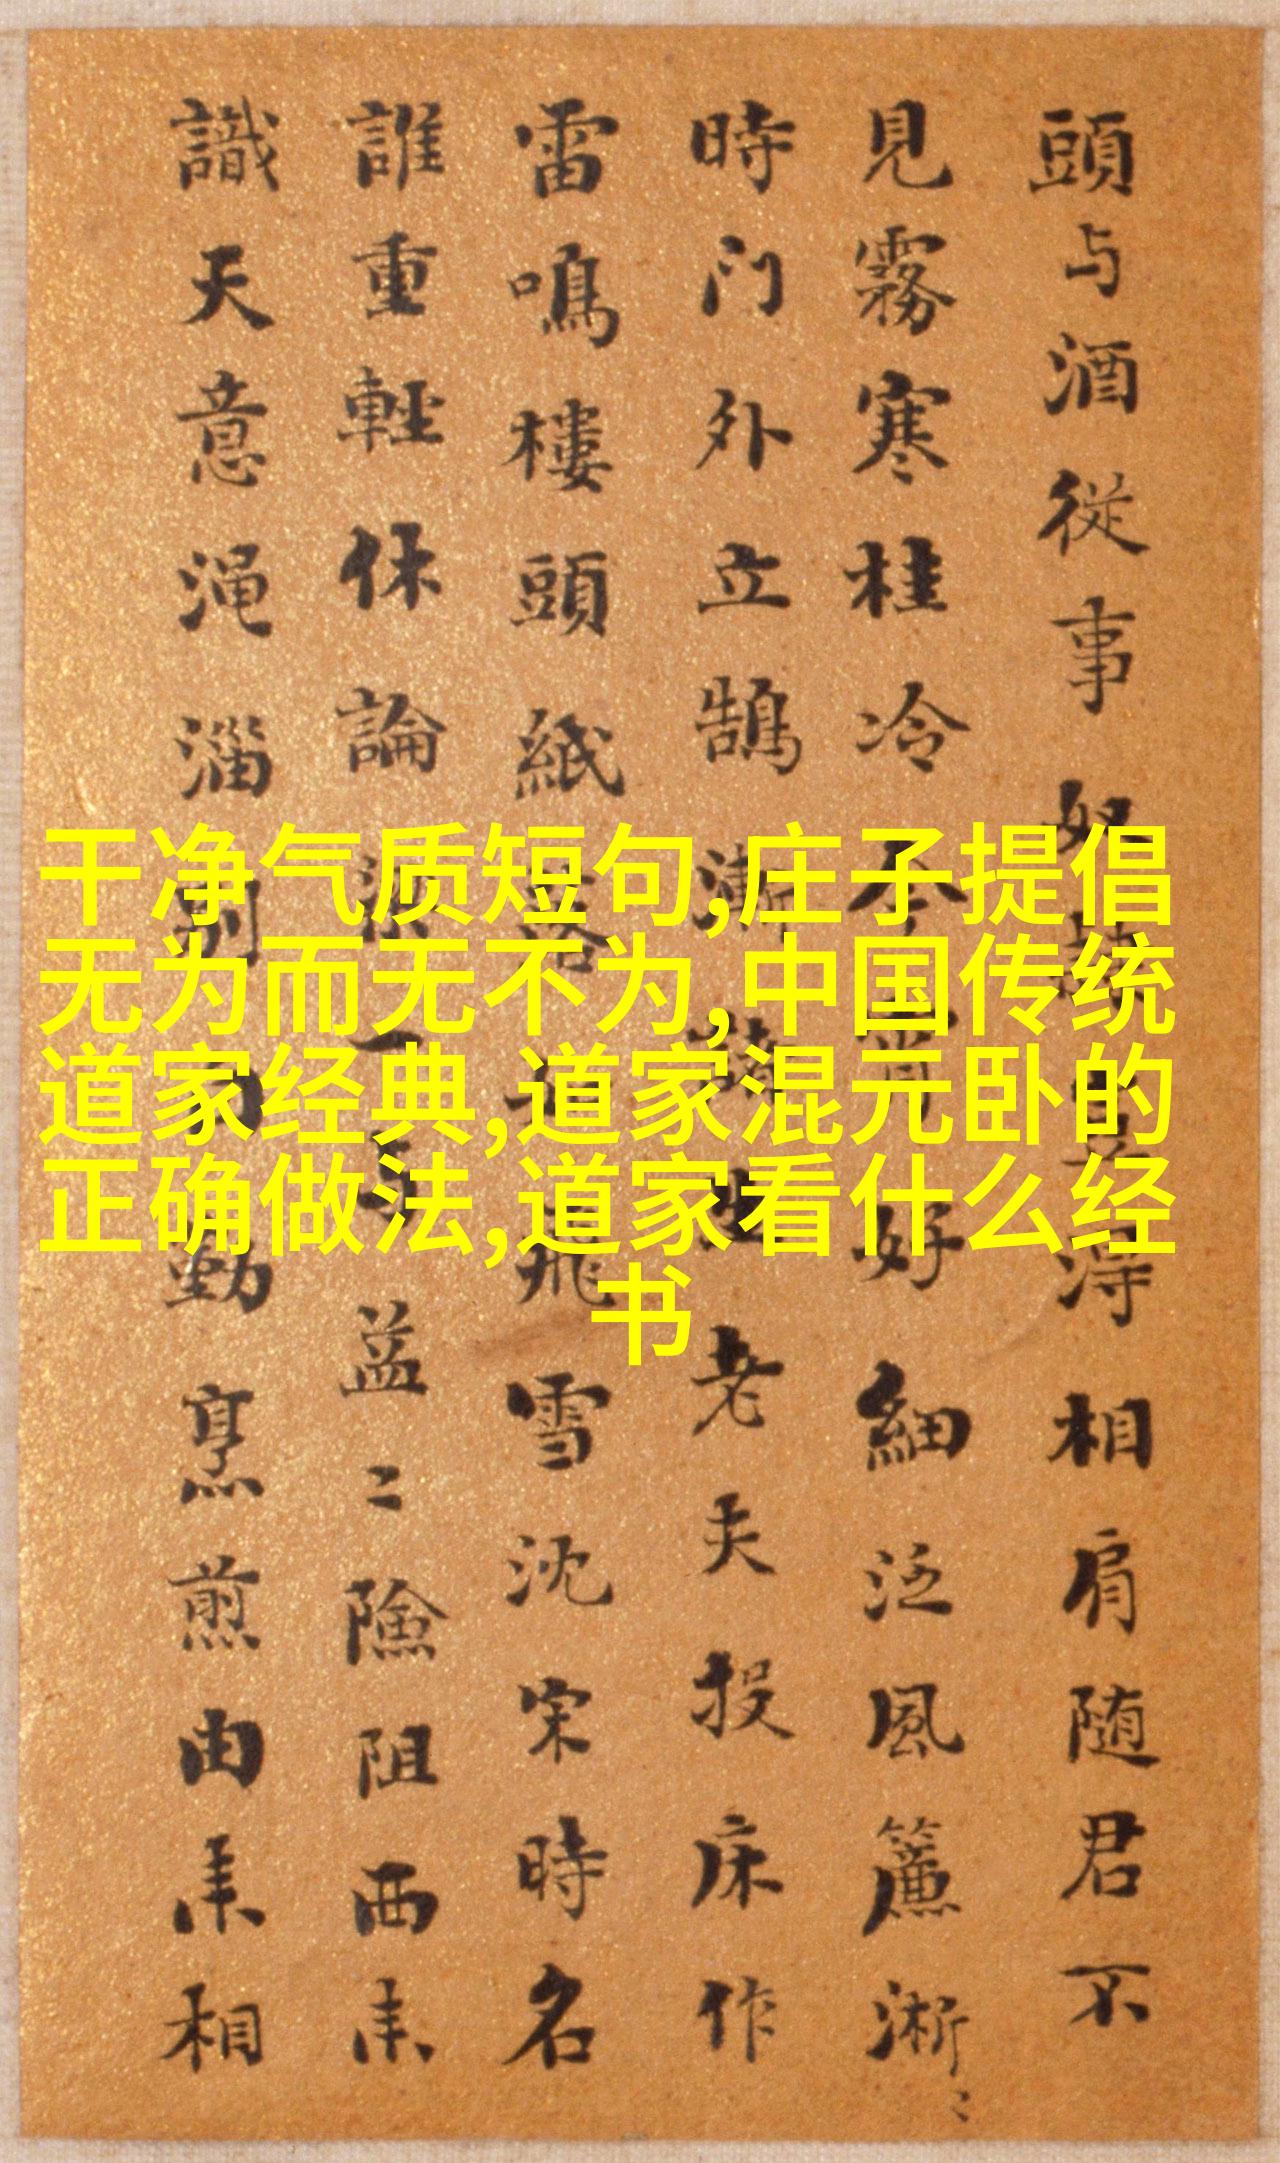 頭与酒從事奴得相肩随君不
見霧寒桂冷好細泛風簾淅〻
時门外立鵠漸老夫投床作
雷鳴樓頭紙落飛雪沈宋時名
誰重輕休論益〻險阻西来
識天意渑淄別勤烹煎由来相
干净气质短句,庄子提倡
无为而无不为,中国传统
道家经典,道家混元卧的
正确做法,道家看什么经
书